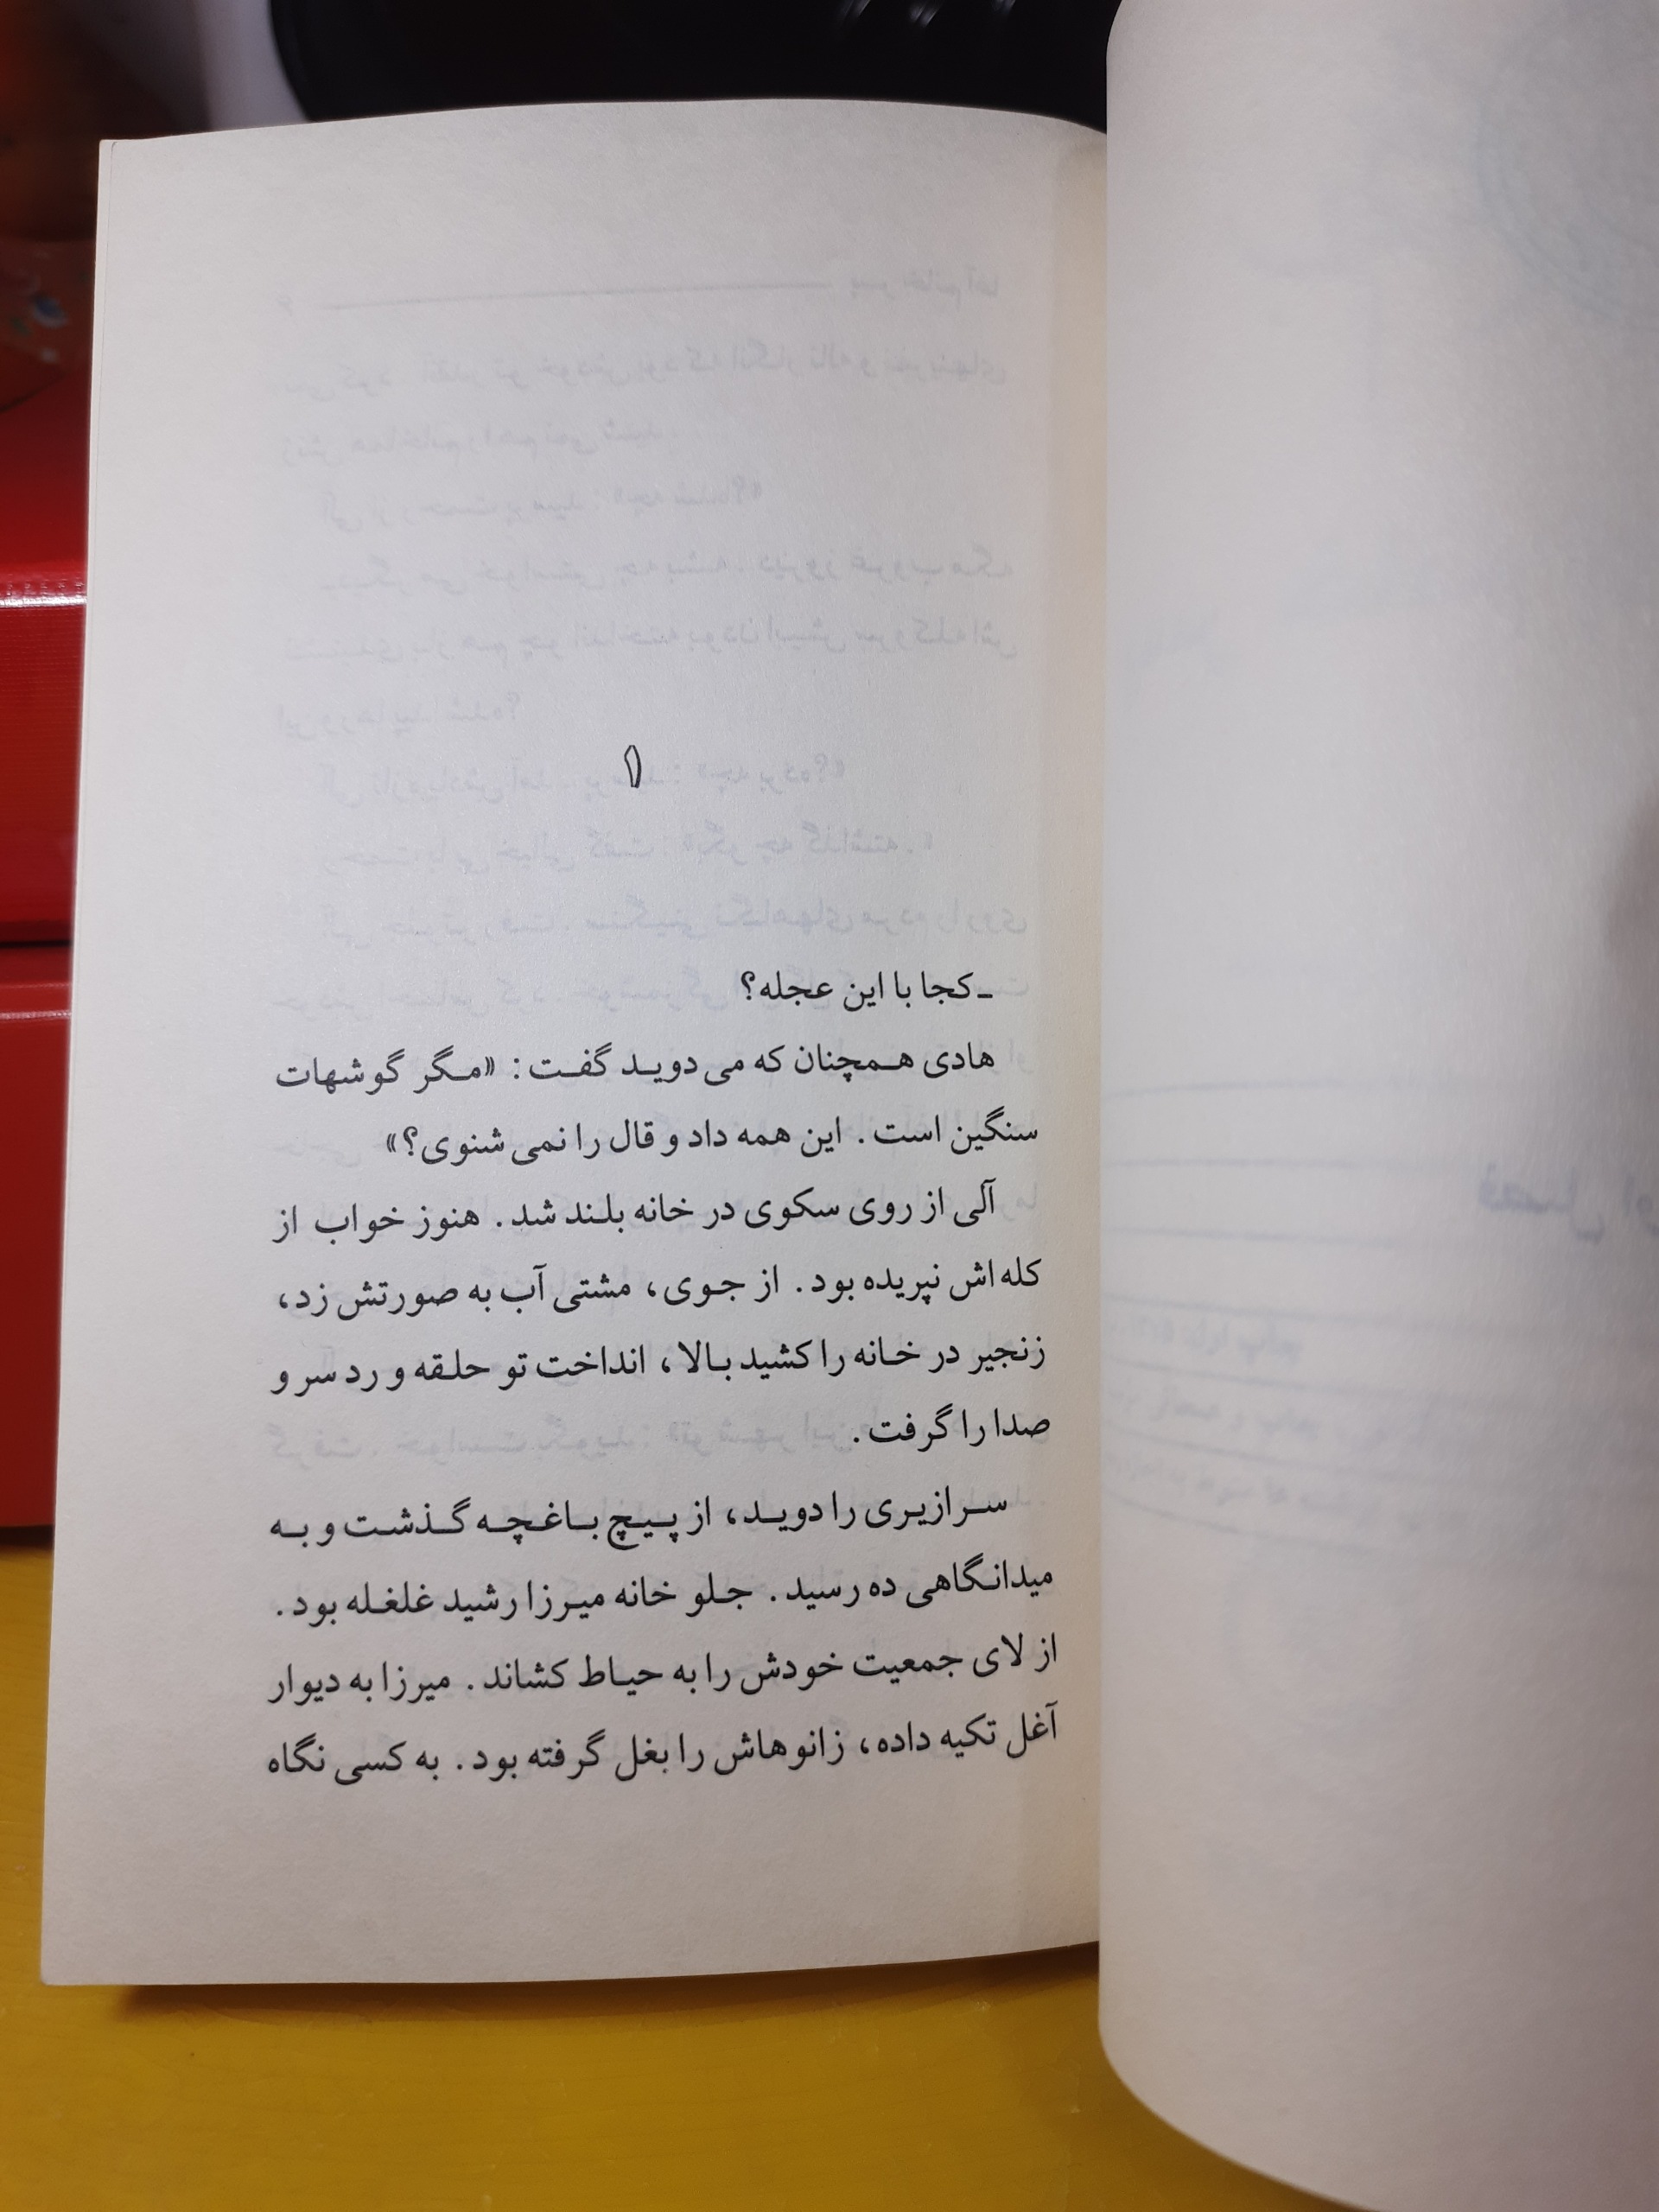 ۱
ـ کجا با این عجله؟
هادی همچنان که می دوید گفت: «مگر گوشهات
سنگین است. این همه داد و قال را نمی شنوی؟»
آلی از روی سکوی در خانه بلند شد. هنوز خواب از
کله اش نپریده بود. از جوی، مشتی آب به صورتش زد،
زنجیر در خانه را کشید بالا، انداخت تو حلقه و رد سر و
صدا را گرفت.
سرازیری را دوید، از پیچ باغچه گذشت و به
میدانگاهی ده رسید. جلو خانه میرزا رشید غلغله بود.
از لای جمعیت خودش را به حیاط کشاند. میرزا به دیوار
آغل تکیه داده، زانوهاش را بغل گرفته بود. به کسی نگاه